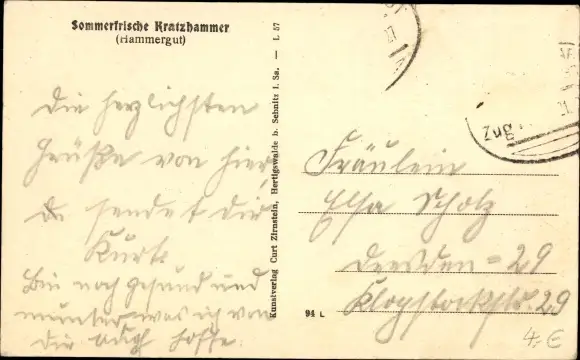 Sommerfrische Kratzhammer
(Hammergut)
Die herzlichsten
Grüße von hier,
sendet dir
Kurt.
Bin noch gesund und
munter was ich von
dir auch hoffe.
Kunstverlag Curt Zirnstein, Hertigswalde b. Sebnitz i. Sa. — L 57
Zug
Fräulein
Elsa Scholz
Dresden = 29
Klopstockstr 29
94 L
4,-€